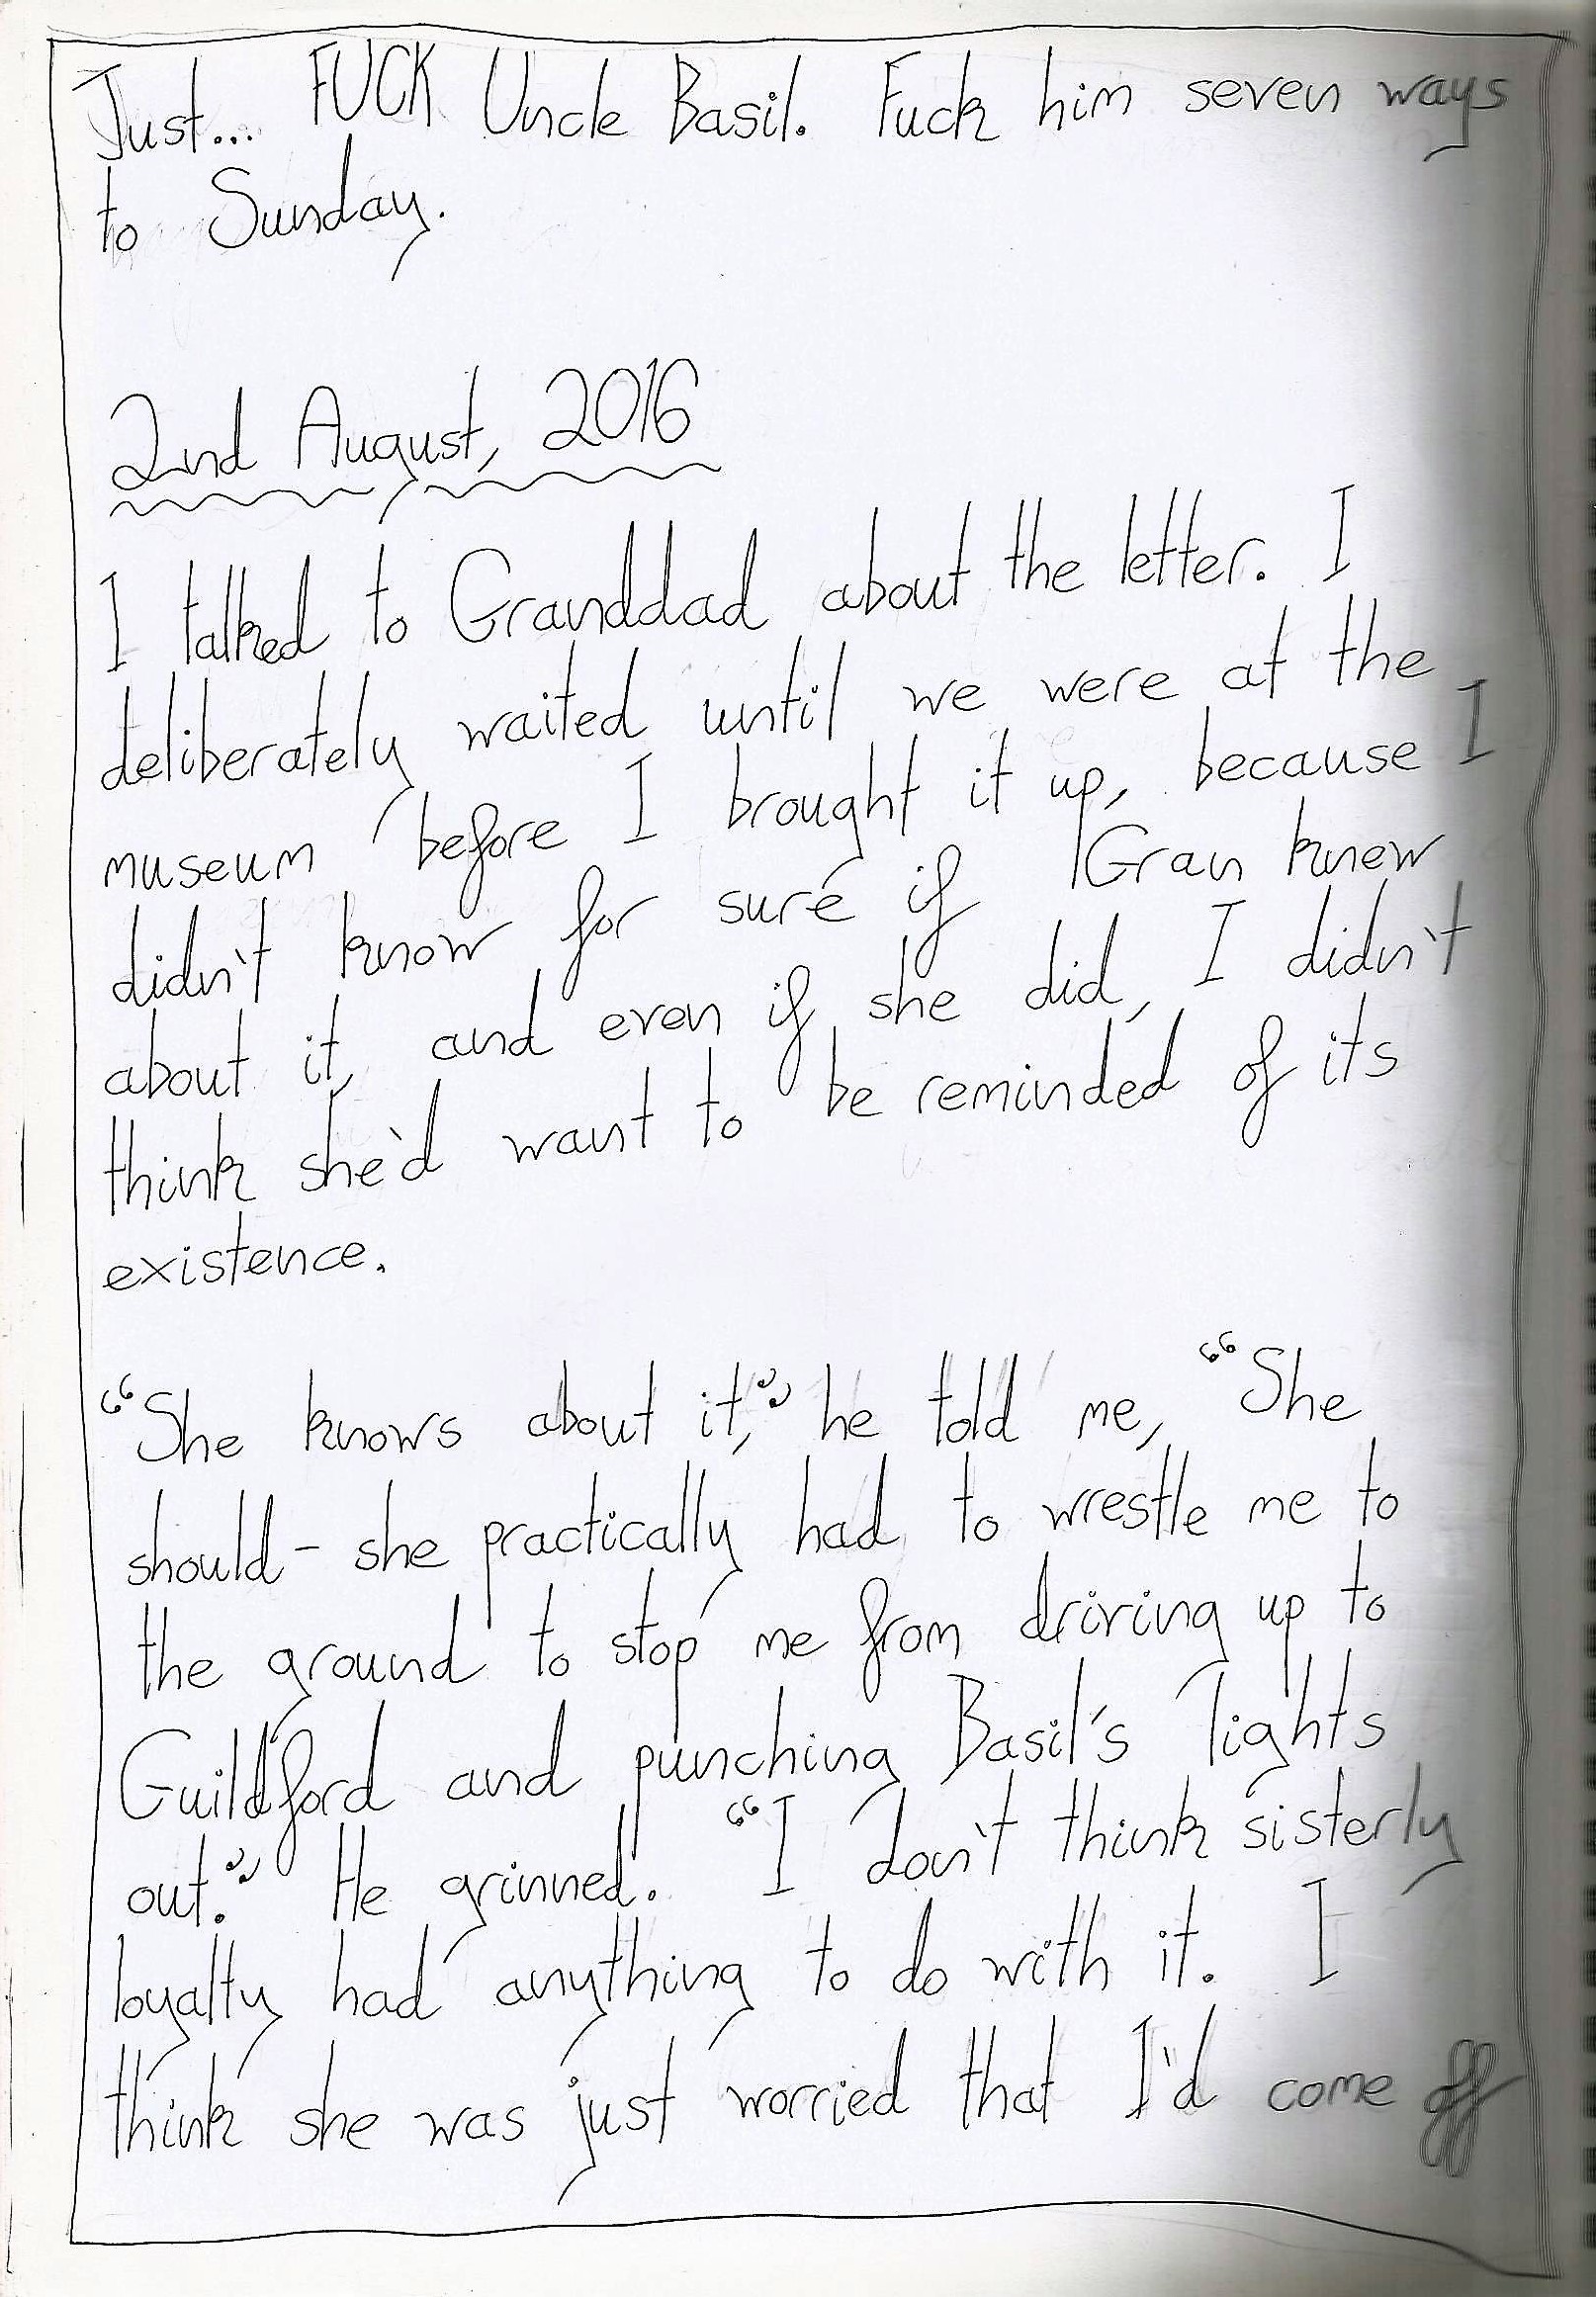 Just... FUCK Uncle Basil. Fuck him seven ways
to Sunday.
2nd August, 2016
I talked to Granddad about the letter. I
deliberately waited until we were at the
museum before I brought it up, because I
didn't know for sure if Gran knew
about it, and even if she did, I didn't
think she'd want to be reminded of its
existence.
“She knows about it,” he told me, “She
should - she practically had to wrestle me to
the ground to stop me from driving up to
Guildford and punching Basil's lights
out.” He grinned. “I don't think sisterly
loyalty had anything to do with it. I
think she was just worried that I'd come off